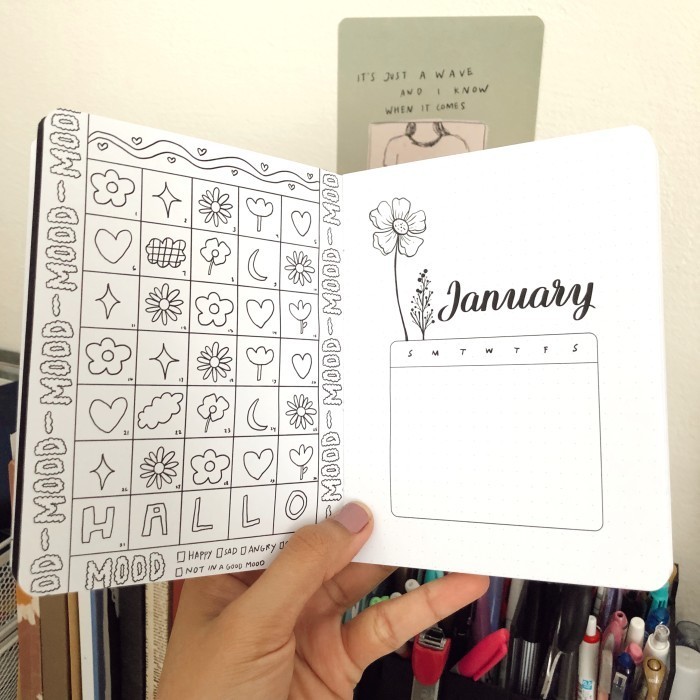 IT'S JUST A WAVE
AND I KNOW
WHEN IT COMES
MOOD-MOOD-MOOD-MOOD
MOOD-MOOD-MOOD-MOOD
1 2 3 4 5
6 7 8 9 10
11 12 13 14 15
16 17 18 19 20
21 22 23 24 25
26 27 28 29 30
HALLO
31
MOOD
HAPPY SAD ANGRY
NOT IN A GOOD MOOD
January
S M T W T F S